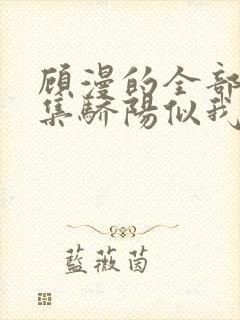 顾漫的全部
集骄陽似我
藍薇茵